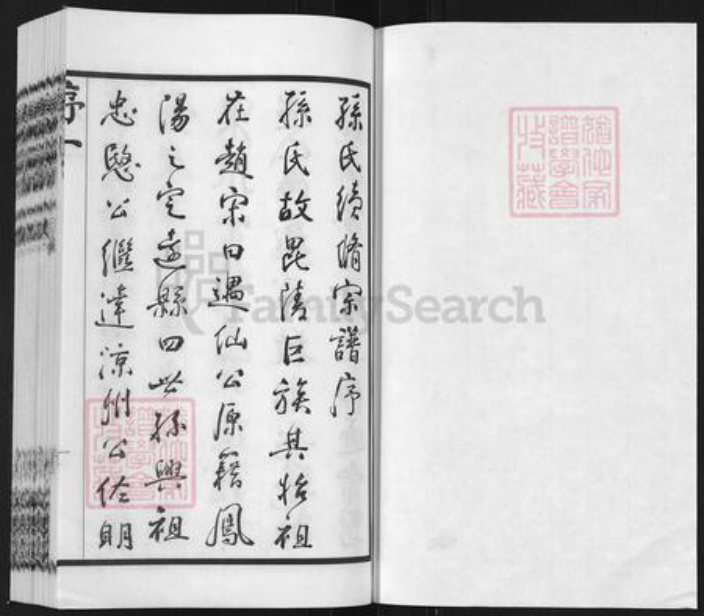 孫氏續脩宗譜序
孫氏故毘陵巨族其始祖
在趙宋曰遇仙公原籍鳳
陽之定遠縣四世孫興祖
忠愍公繼達涼州公佐明
序一
FamilySearch